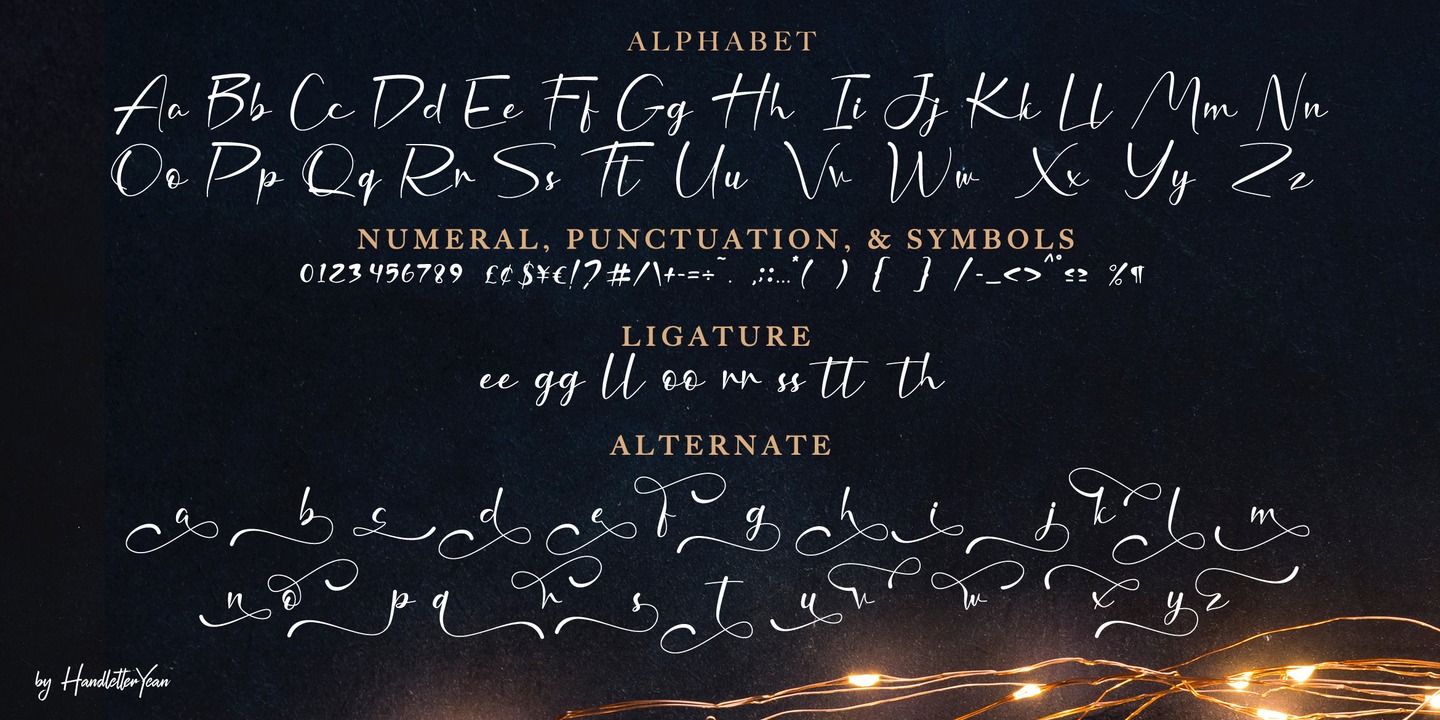 ALPHABET
Aa Bb Cc Dd Ee Ff Gg Hh Ii Jj Kk Ll Mm Nn
Oo Pp Qq Rr Ss Tt Uu Vv Ww Xx Yy Zz
NUMERAL, PUNCTUATION, & SYMBOLS
0123456789 £¢$¥€!?#/\+-=÷~. ,;:...*( ) { } /-_<>^°≤≥ %¶
LIGATURE
ee gg ll oo rr ss tt th
ALTERNATE
a b c d e f g h i j k l m
n o p q r s t u v w x y z
by HandletterYean